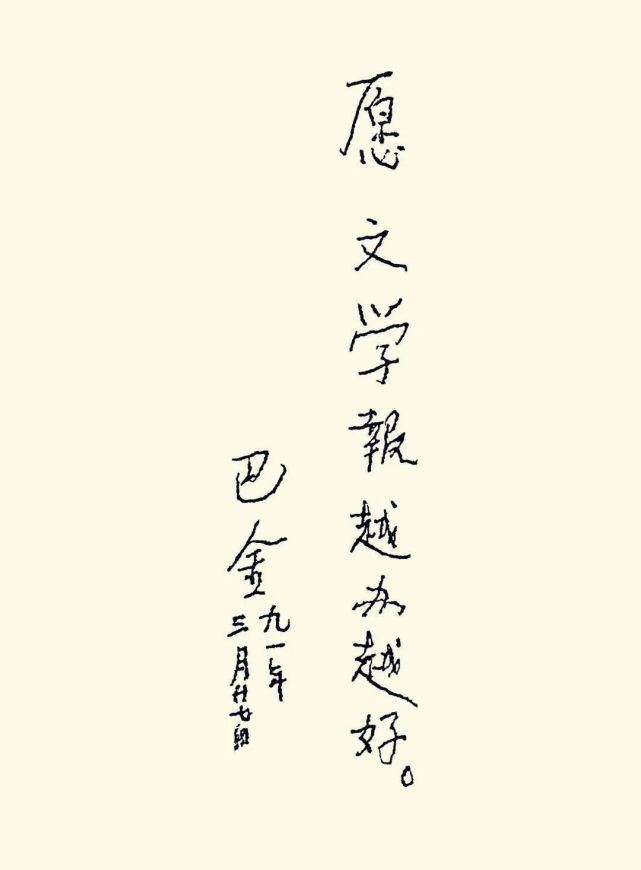 愿文学報越办越好。
巴金
九一年
三月廿七日